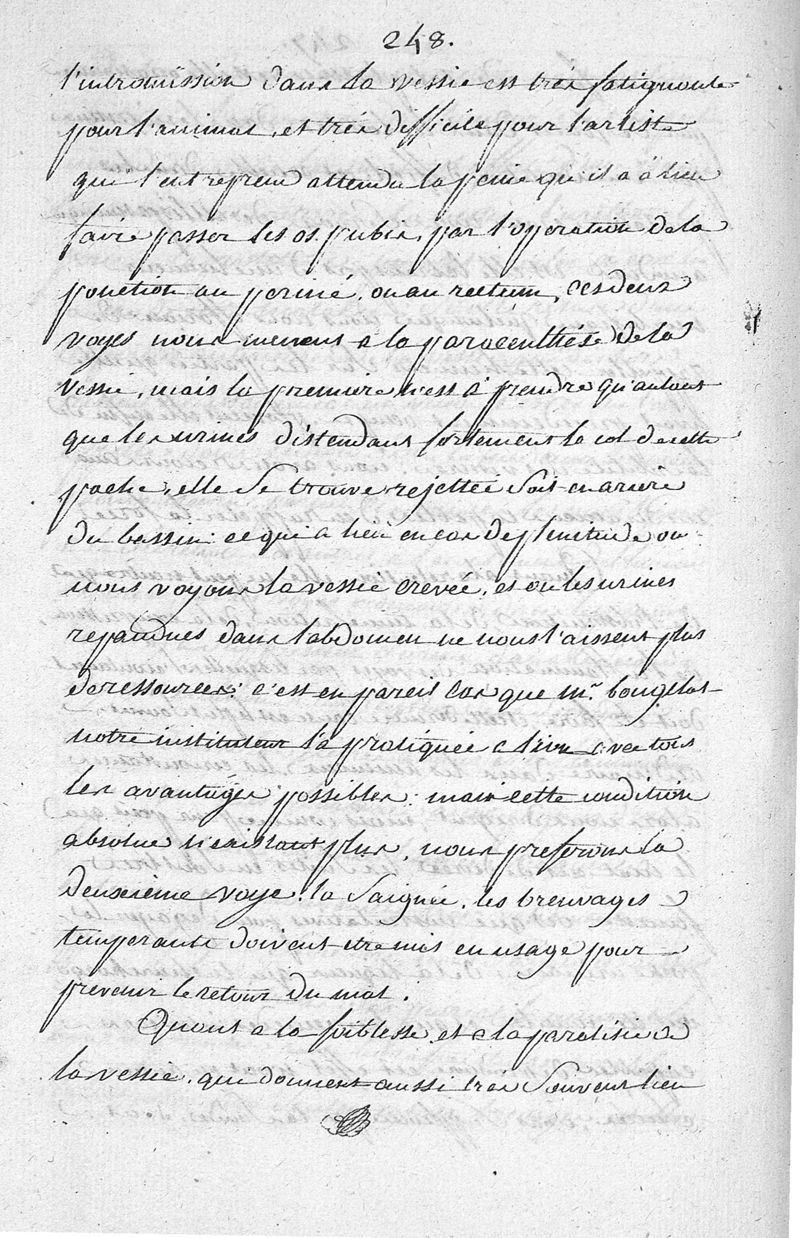 248.
l'intromission dans la vessie est tres fatignante
pour l'animal, et tres difficile pour l'artiste
qui l'entreprend attendu la peine qu'il a à lieu
faire passer les os pubis, par l'operation de la
ponction au periné, ou au rectum, ces deux
voyes nous menent a la paracenthése de la
vessie, mais la premiere n'est à prendre qu'autant
que les urines distendant fortement le col de cette
poche, elle se trouve rejettée soit en ariere
du bassin: ce qui a lieu en cas de plenitude ou
nous voyons la vessie crevée, et ou les urines
repandues dans l'abdomen ne nous l'aissent plus
de ressources; c'est en pareil cas que mr. bougelat
notre instituteur la pratiquée a lion avec tous
les avantages possibles: mais cette condition
absolue n'existant plus, nous preferons la
deuxième voye. la saignée, les breuvages
temperants doivent etre mis en usage pour
prevenir le retour du mal.
Quant a la foiblesse et a la paralisie de
la vessie, que donnent aussi tres souvent lieu